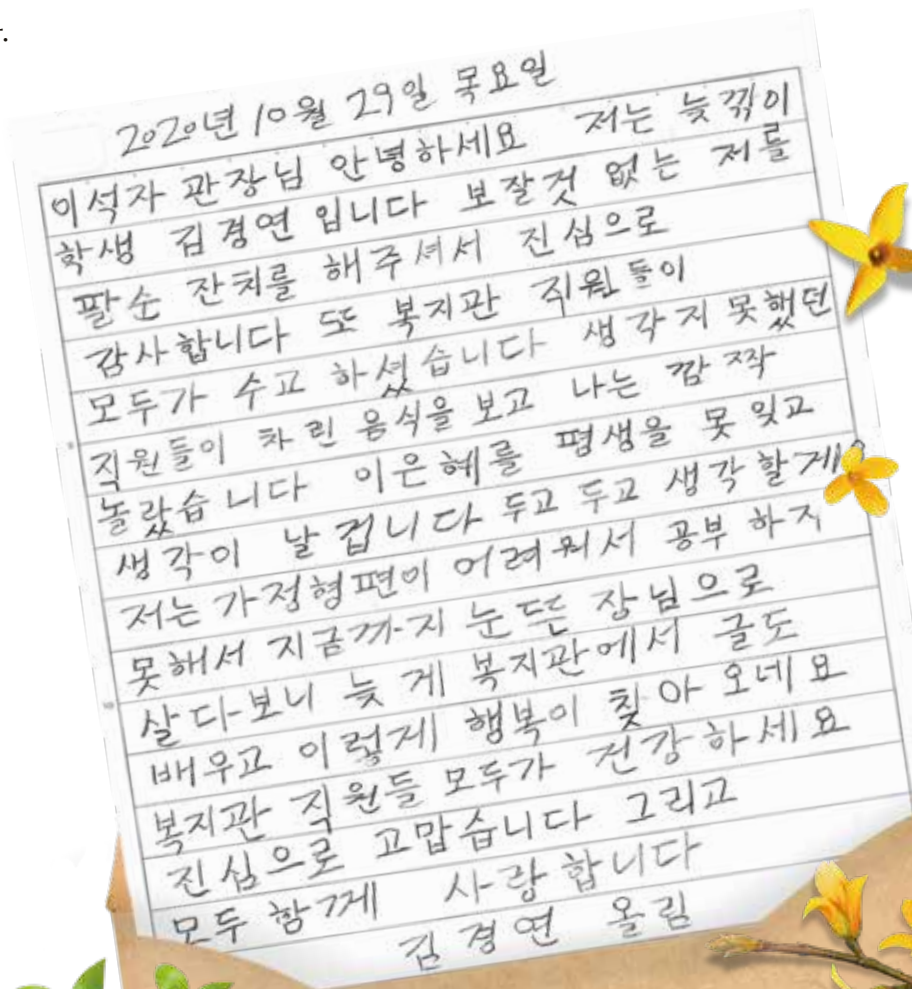 2020년 10월 29일 목요일
이석자 관장님 안녕하세요 저는 늦깎이
학생 김경연 입니다 보잘것 없는 저를
팔순 잔치를 해주셔서 진심으로
감사합니다 또 복지관 직원들이
모두가 수고 하셨습니다 생각지 못했던
직원들이 차린 음식을 보고 나는 깜짝
놀랐습니다 이은혜를 평생을 못 잊고
생각이 날 겁니다 두고 두고 생각 할게요
저는 가정형편이 어려워서 공부 하지
못해서 지금까지 눈뜬 장님으로
살다보니 늦게 복지관에서 글도
배우고 이렇게 행복이 찾아 오네요
복지관 직원들 모두가 건강하세요
진심으로 고맙습니다 그리고
모두 함께 사랑합니다
김경연 올림